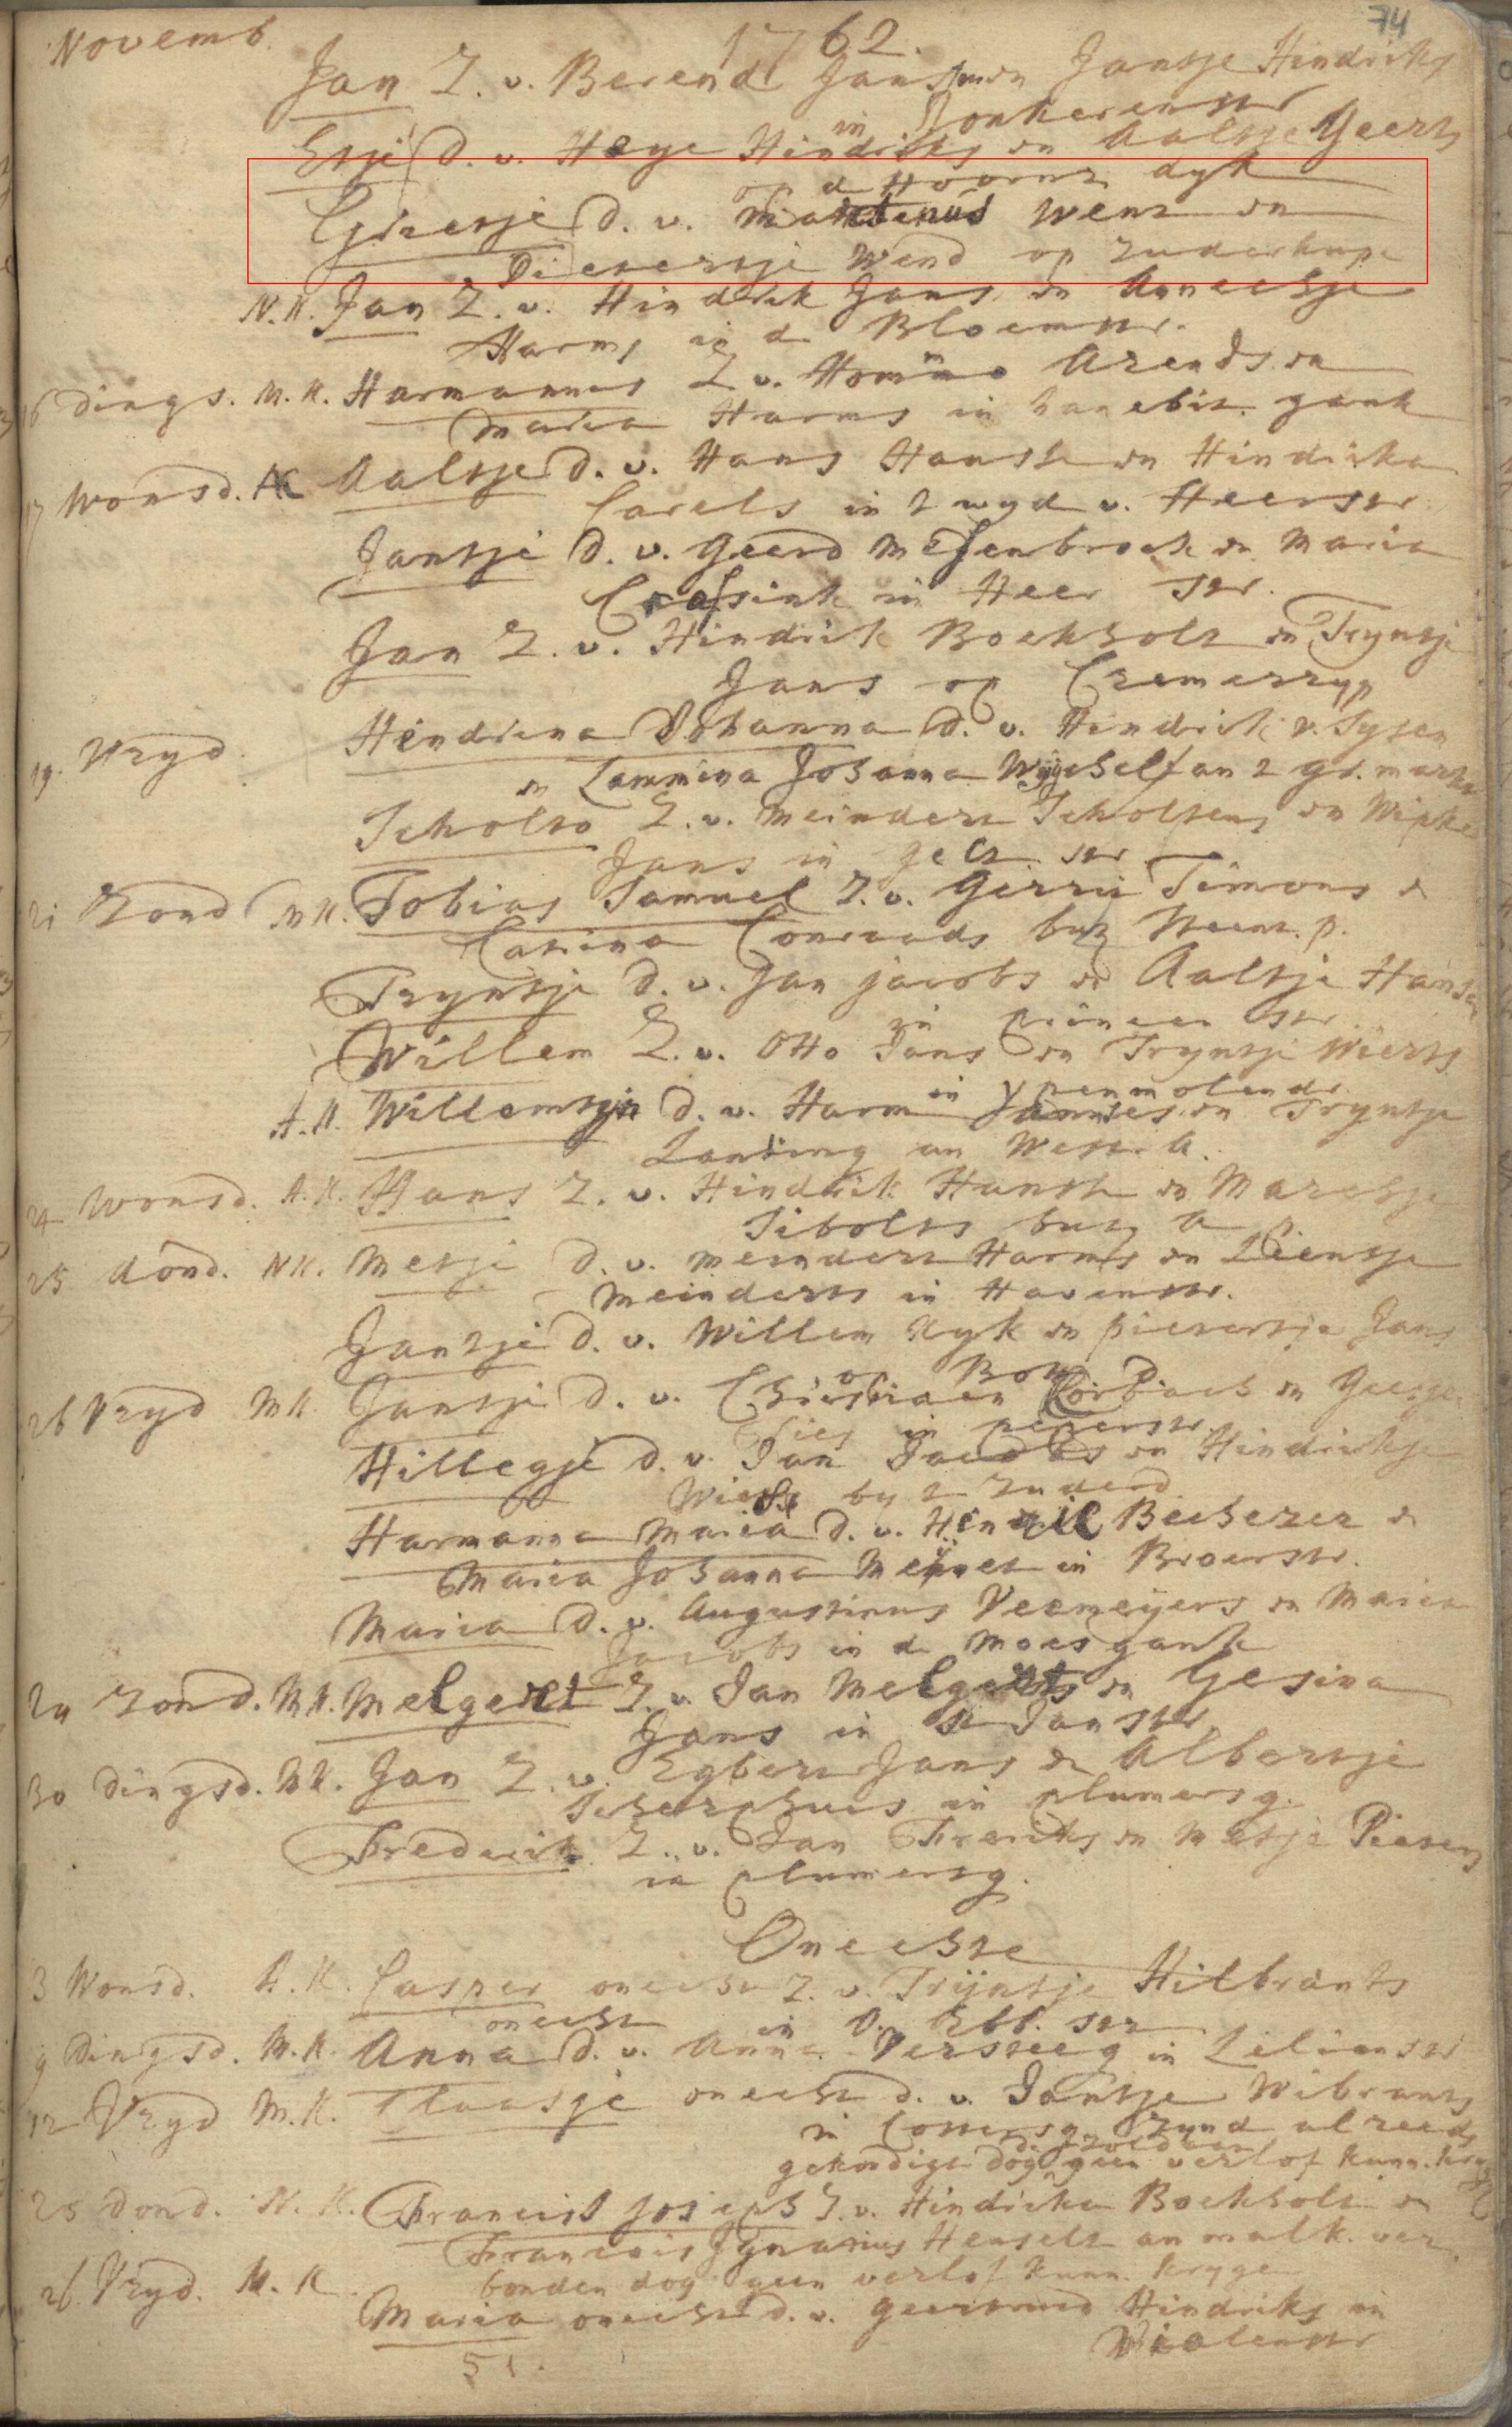 Novemb. 1762. 74
Jan Z. v. Berend Janssen en Jantje Hindriks
in Jonkerenstr
Etje D. v. Heye Hindriks en Aaltje Geerts
op d Hoornz dyk
Grietje D. v. Martinus Went en
Dievertje Wend op Zuderkupe
N.K. Jan Z. v. Hindrik Jans en Annechje
Harms in d Bloemstr.
16 dings. M.K. Harmannus Z. v. Homme Arends en
Maria Harms in gank
17 Wonsd. AK Aaltje D. v. Hans Hanssen en Hindrika
Carels in t wyd v. Heerstr.
Jantje D. v. Geerd Messenbroek en Maria
in Heer str.
Jan Z. v. Hindrik Bockholt en Tryntje
Jans op Cremerryp
19. Vryd. Hendriena Johanna D. v. Hendrik v. Sysen
en Lammina Johanna an t gr. markt
Scholto Z. v. Meindert Scholtens en Wipke
Jans in Gelt str
21 Zond M K. Tobias Samuel Z. v. Gerrit Timons en
Catrina Conraads but Steent. p.
Tryntje D. v. Jan Jacobs en Aaltje Hansen
in Princen str.
Willem Z. v. Otto Jans en Tryntje Wierts
in Ypenmolendr.
A.K. Willemtjen D. v. Harm Jannes en Tryntje
Lanting an Wester A.
24 Wonsd. A.K. Hans Z. v. Hindrik Hansen en Maretje
Sibolts but A p.
25 dond. NK. Metje D. v. Meindert Harms en Trientje
Meinderts in Havenstr.
Jantje D. v. Willem Kyk en Pietertje Jans
op Bom D
26 Vryd M K. Jantje D. v. Christiaen Corbach en Geesje
in Peperstr.
Hillegje D. v. Jan Jacobs en Hindrikje
by t Zuderd.
Harmanna Maria D. v. Henric Becherer en
Maria Johanna Meynet in Broerstr.
Maria D. v. Augustinus Veemeyers en Maria
Jacobs in d Moesgank
Zond. M K. Melgert Z. v. Jan Melgerts en Gesina
Jans in St Jan str.
30 dingsd. N K. Jan Z. v. Egbert Jans en Albertje
Scherphuis in plumersg.
Frederik Z. v. Jan Frericks en Metje Pieters
in plumersg.
Onechte
3 Wonsd. A. K. Casper onecht Z. v. Trijntje Hilbrants
in O. Ebb. str
9 Dingsd. M.K. Anna onecht D. v. Anna Versteeg in Lelienstr
12 Vryd M.K. Claasje onecht d. v. Jantje Wibrants
in Costersg. zynd alreeds
gekondigt dog geen verlof kunn. kryg
25 dond. N. K. Francisc Joseph Z. v. Hindrika Bockholt en
Francois Ignatius Henselt an malk. ver
bonden dog geen verlof kunn. kryge
26 Vryd. M. K. Maria onecht d. v. Geertruid Hindriks in
Violenstr
51.